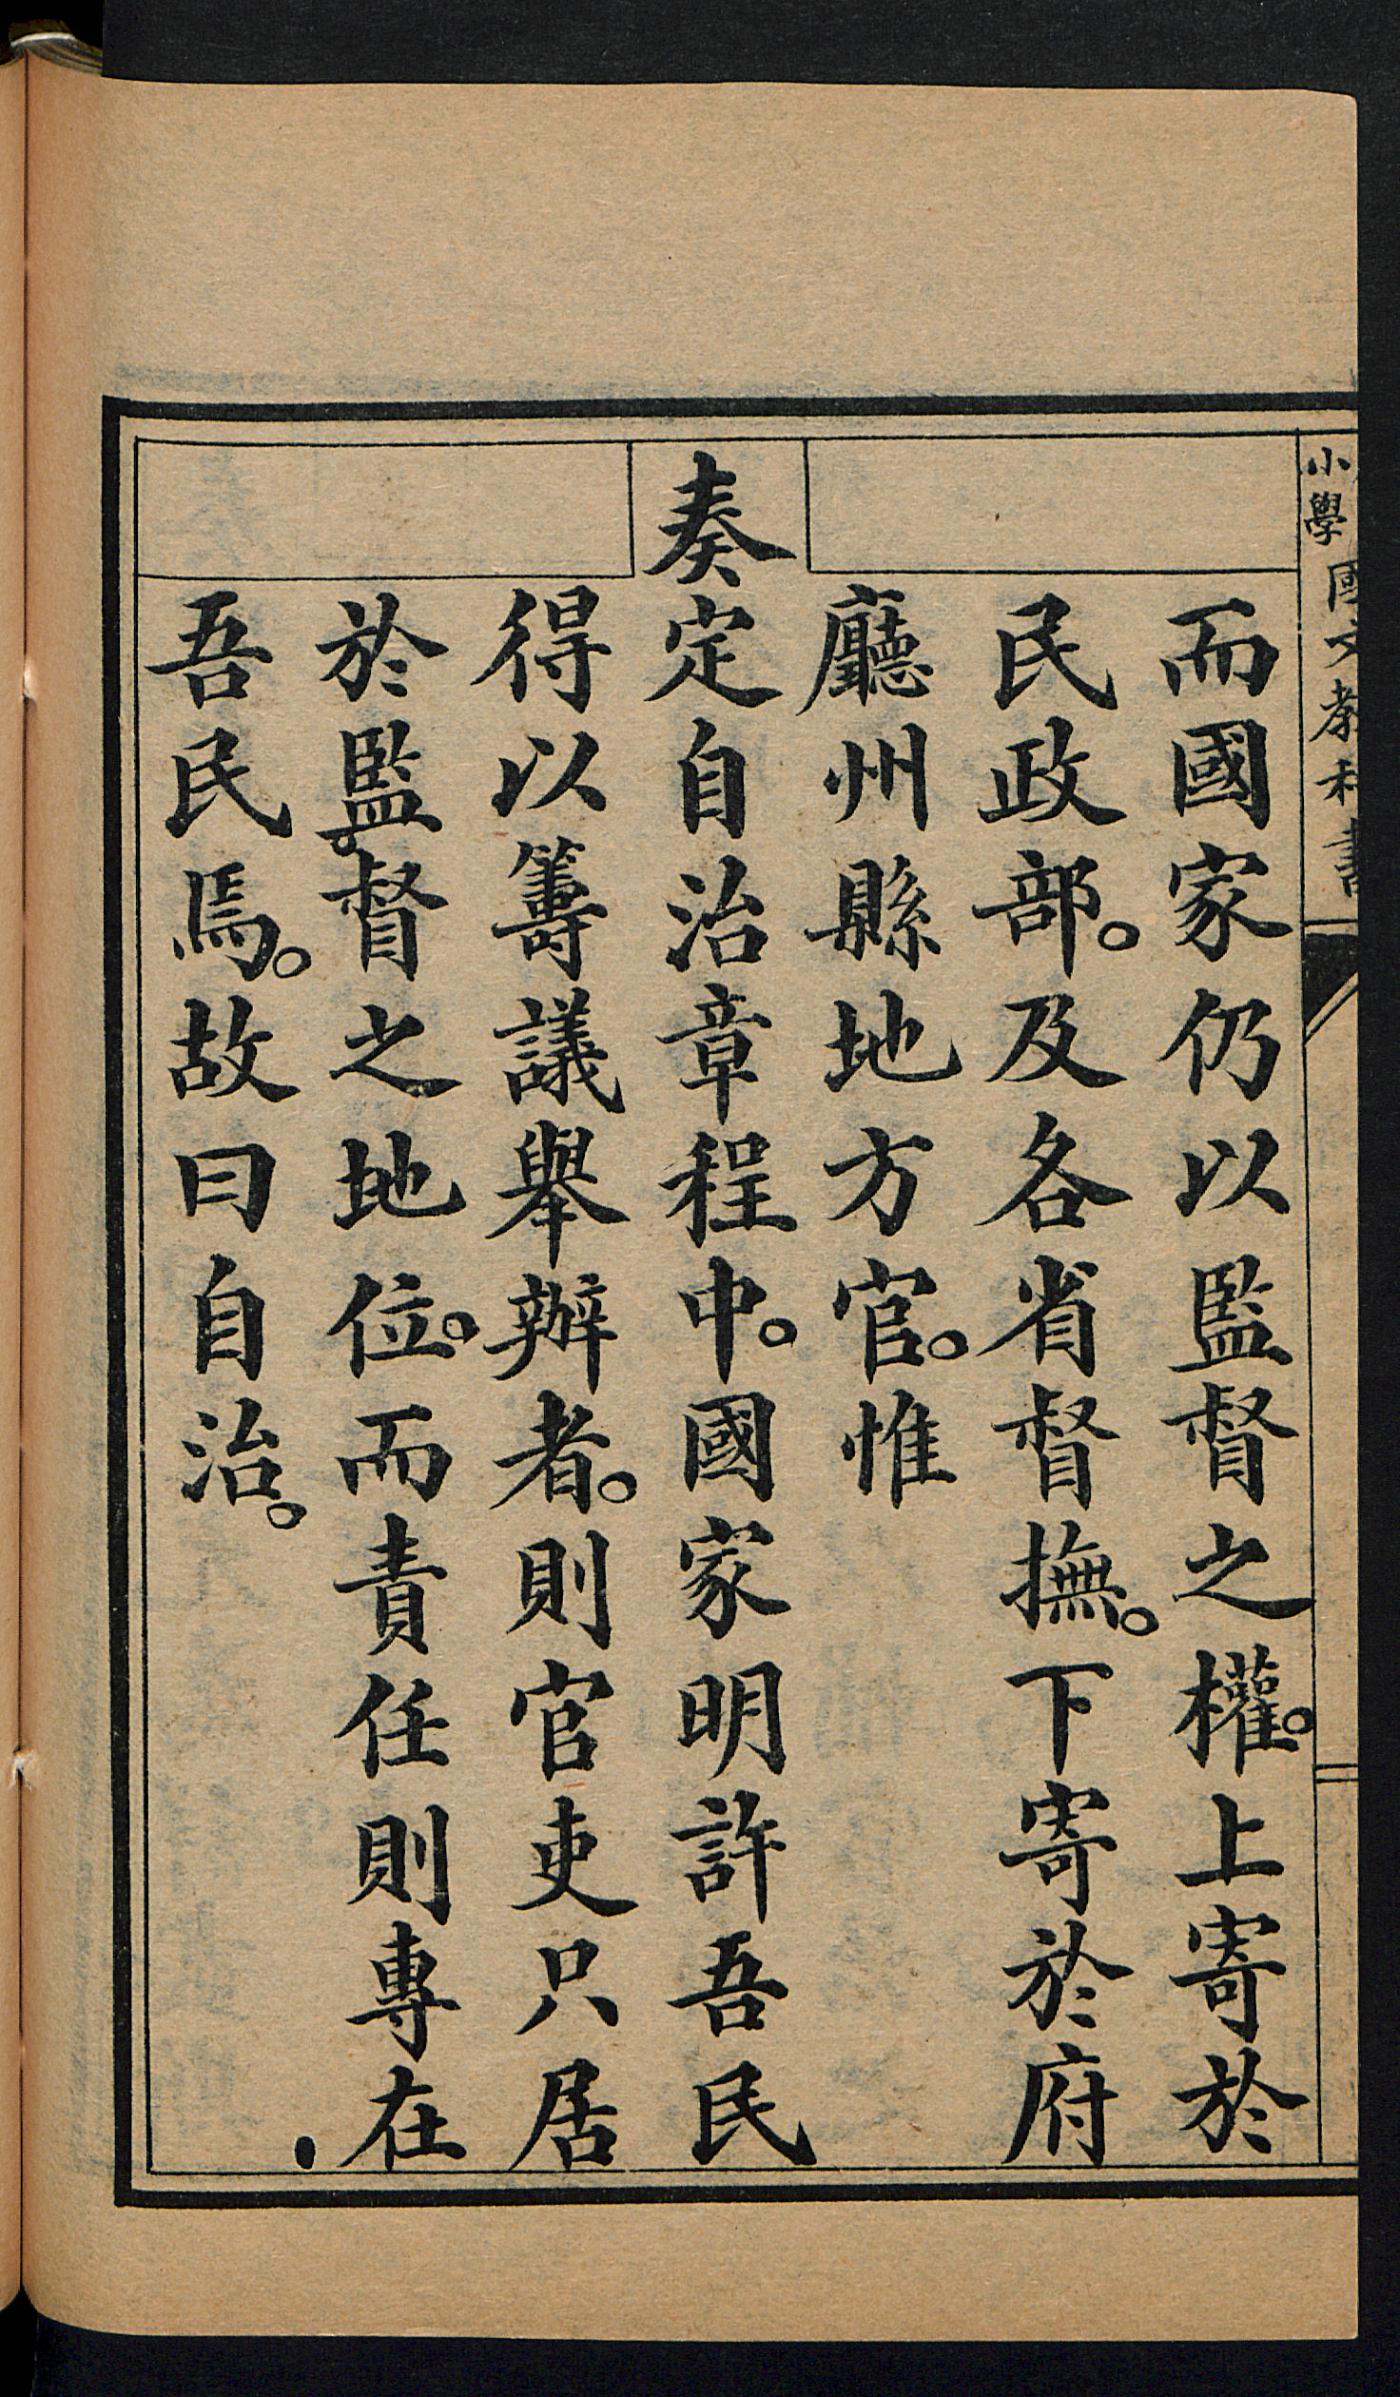 小學國文教科書
而國家仍以監督之權。上寄於
民政部。及各省督撫。下寄於府
廳州縣地方官。惟
奏定自治章程中。國家明許吾民
得以籌議舉辦者。則官吏只居
於監督之地位。而責任則專在
吾民焉。故曰自治。